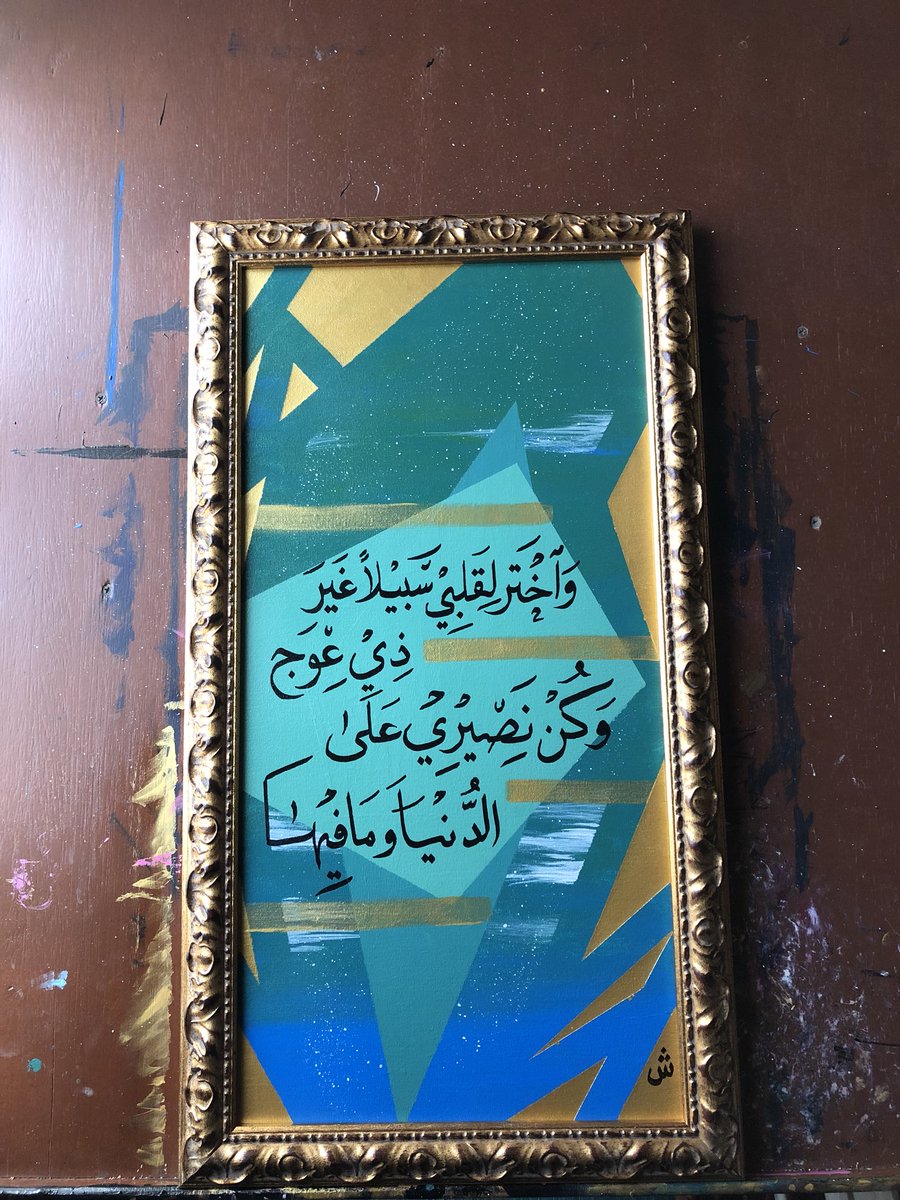 وَٱخْتَر لِقَلبِيْ سَّبيْلاً غَيَرَ
ذِيْ عِّوَج
وَكُنْ نَصِّيْرِيْ عَلَىٰ
الدُّنْيَا وَمَا فِيْهَا
ش